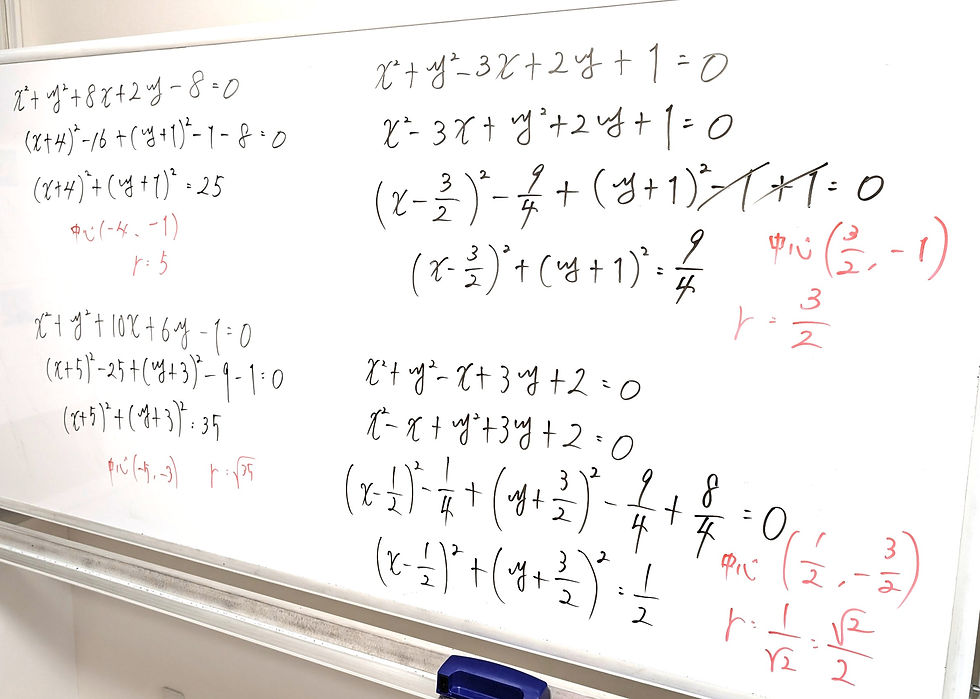 x²+y²+8x+2y-8=0
(x+4)²-16+(y+1)²-1-8=0
(x+4)²+(y+1)²=25
中心(-4、-1)
r=5
x²+y²+10x+6y-1=0
(x+5)²-25+(y+3)²-9-1=0
(x+5)²+(y+3)²=35
中心(-5,-3) r=√35
x²+y²-3x+2y+1=0
x²-3x+y²+2y+1=0
(x-3/2)²-9/4+(y+1)²-1+1=0
(x-3/2)²+(y+1)²=9/4
中心(3/2,-1)
r=3/2
x²+y²-x+3y+2=0
x²-x+y²+3y+2=0
(x-1/2)²-1/4+(y+3/2)²-9/4+8/4=0
(x-1/2)²+(y+3/2)²=1/2
中心(1/2,-3/2)
r=1/√2=√2/2